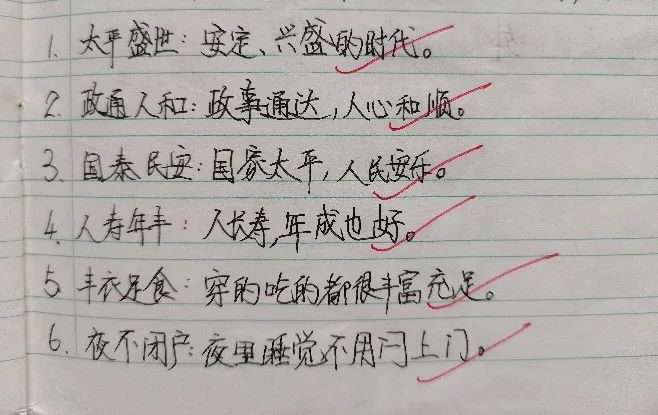 1. 太平盛世：安定、兴盛的时代。
2. 政通人和：政事通达，人心和顺。
3. 国泰民安：国家太平，人民安乐。
4. 人寿年丰：人长寿，年成也好。
5. 丰衣足食：穿的吃的都很丰富充足。
6. 夜不闭户：夜里睡觉不用闩上门。